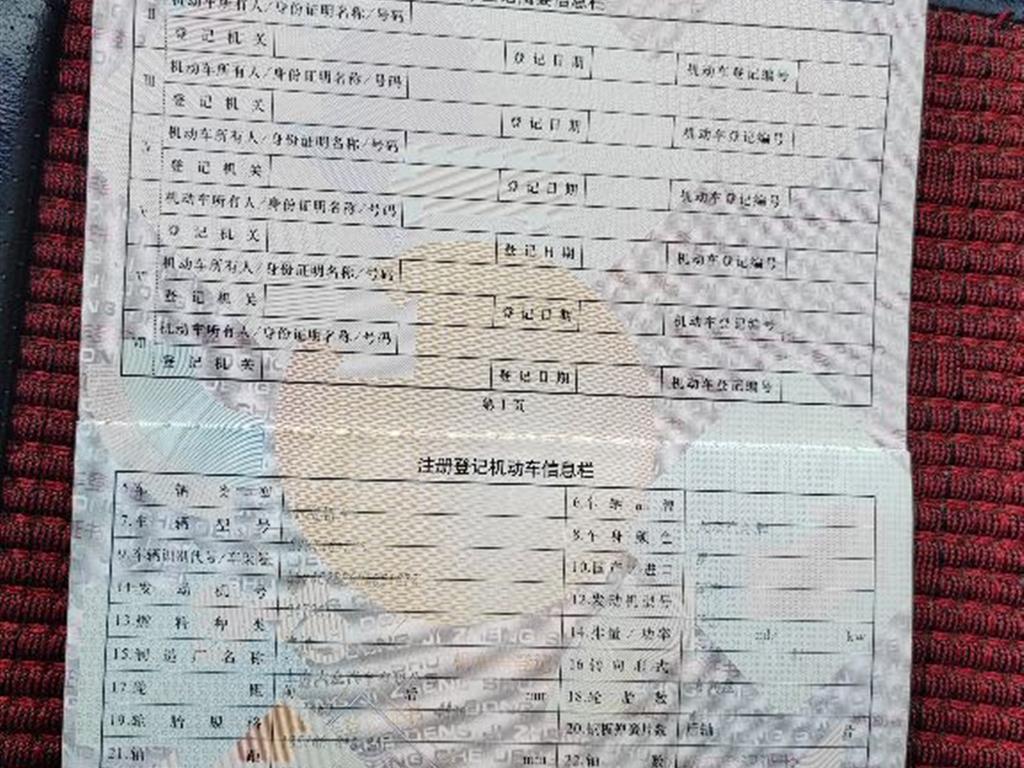 II 机动车所有人/身份证明名称/号码
登记机关 登记日期 机动车登记编号
III 机动车所有人/身份证明名称/号码
登记机关 登记日期 机动车登记编号
机动车所有人/身份证明名称/号码
登记机关 登记日期 机动车登记编号
机动车所有人/身份证明名称/号码
登记机关 登记日期 机动车登记编号
机动车所有人/身份证明名称/号码
登记机关 登记日期 机动车登记编号
VII 机动车所有人/身份证明名称/号码
登记机关 登记日期 机动车登记编号
第1页
注册登记机动车信息栏
5.车辆类型 6.车辆品牌
7.车辆型号 8.车身颜色
9.车辆识别代号/车架号 10.国产/进口
11.发动机号 12.发动机型号
13.燃料种类 14.排量/功率 ml/ kw
15.制造厂名称 16.转向形式
17.轮距 前 后 mm 18.轮胎数
19.轮胎规格 20.钢板弹簧片数 后轴 片
21.轴距 mm 22.轴数